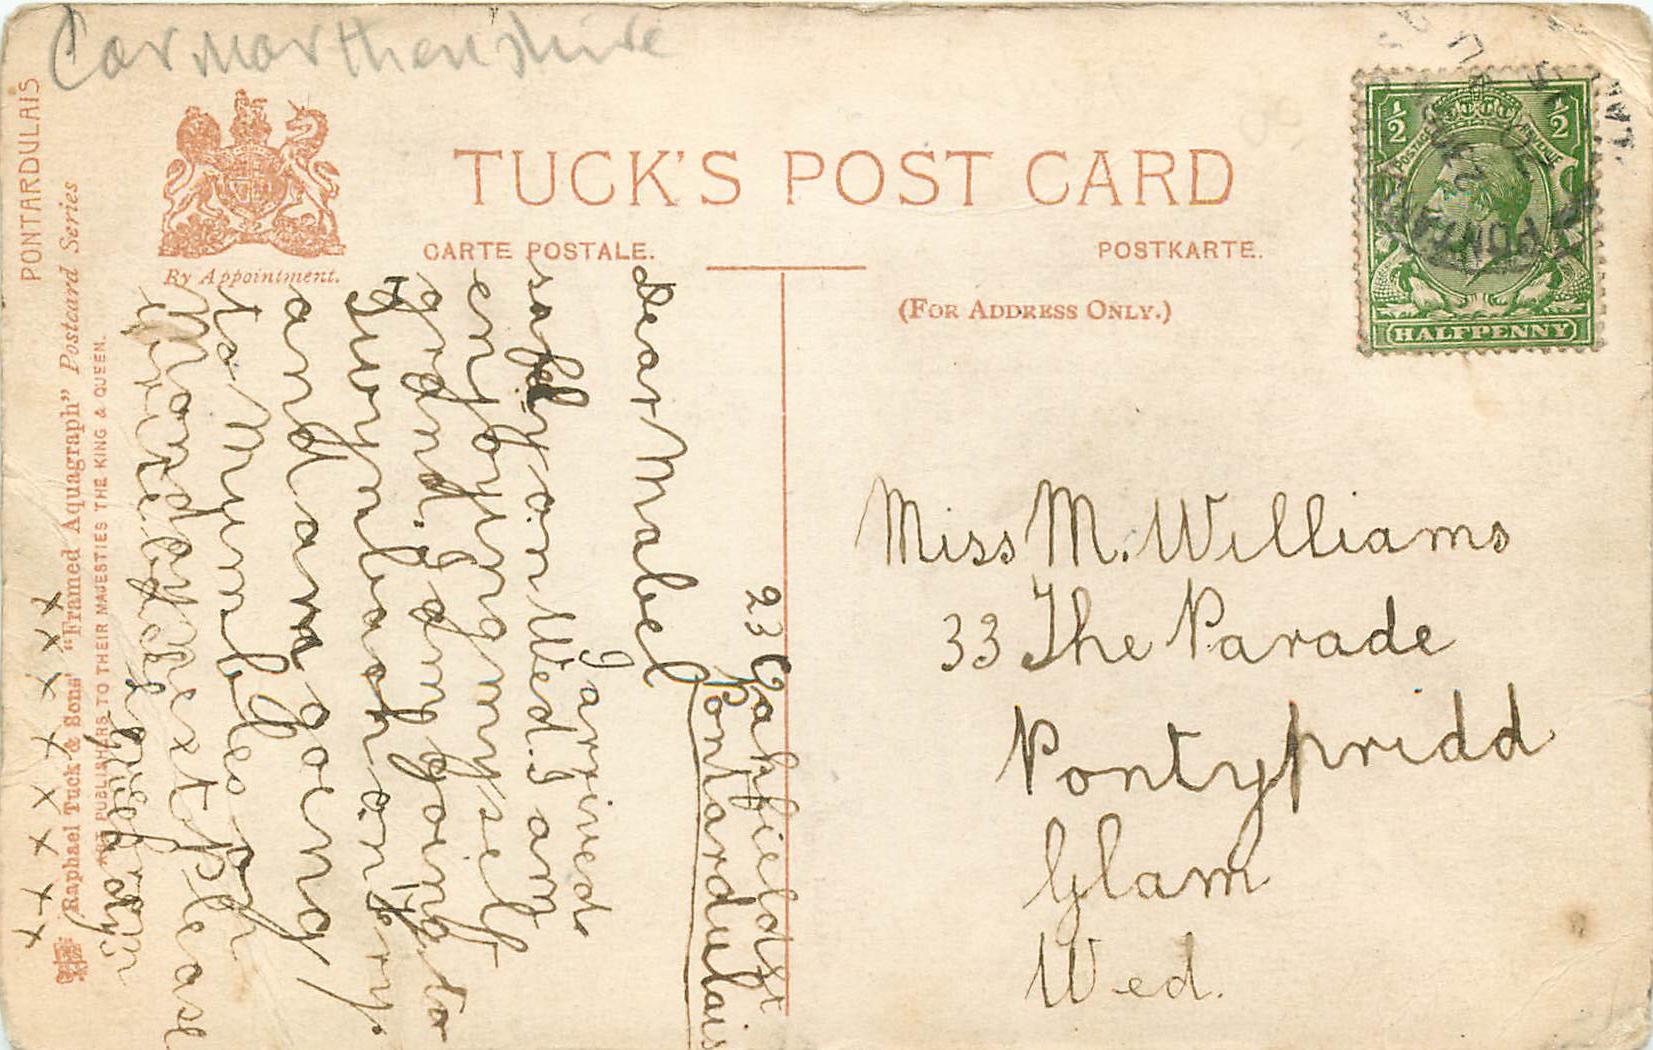 Carmarthenshire
PONTARDULAIS
TUCK'S POST CARD
CARTE POSTALE.
POSTKARTE.
(FOR ADDRESS ONLY.)
By Appointment.
Raphael Tuck & Sons' "Framed Aquagraph" Postcard Series
ART PUBLISHERS TO THEIR MAJESTIES THE KING & QUEEN.
½ ½
POSTAGE REVENUE
HALFPENNY
23 Oakfield St
Pontardulais
Dear Mabel
I arrived
safely on Wed. I am
enjoying myself
grand. I am going to
on
and am going
to Mumbles on
Monday next please
write back
x x x x x x x
Miss M. Williams
33 The Parade
Pontypridd
Glam
Wed.